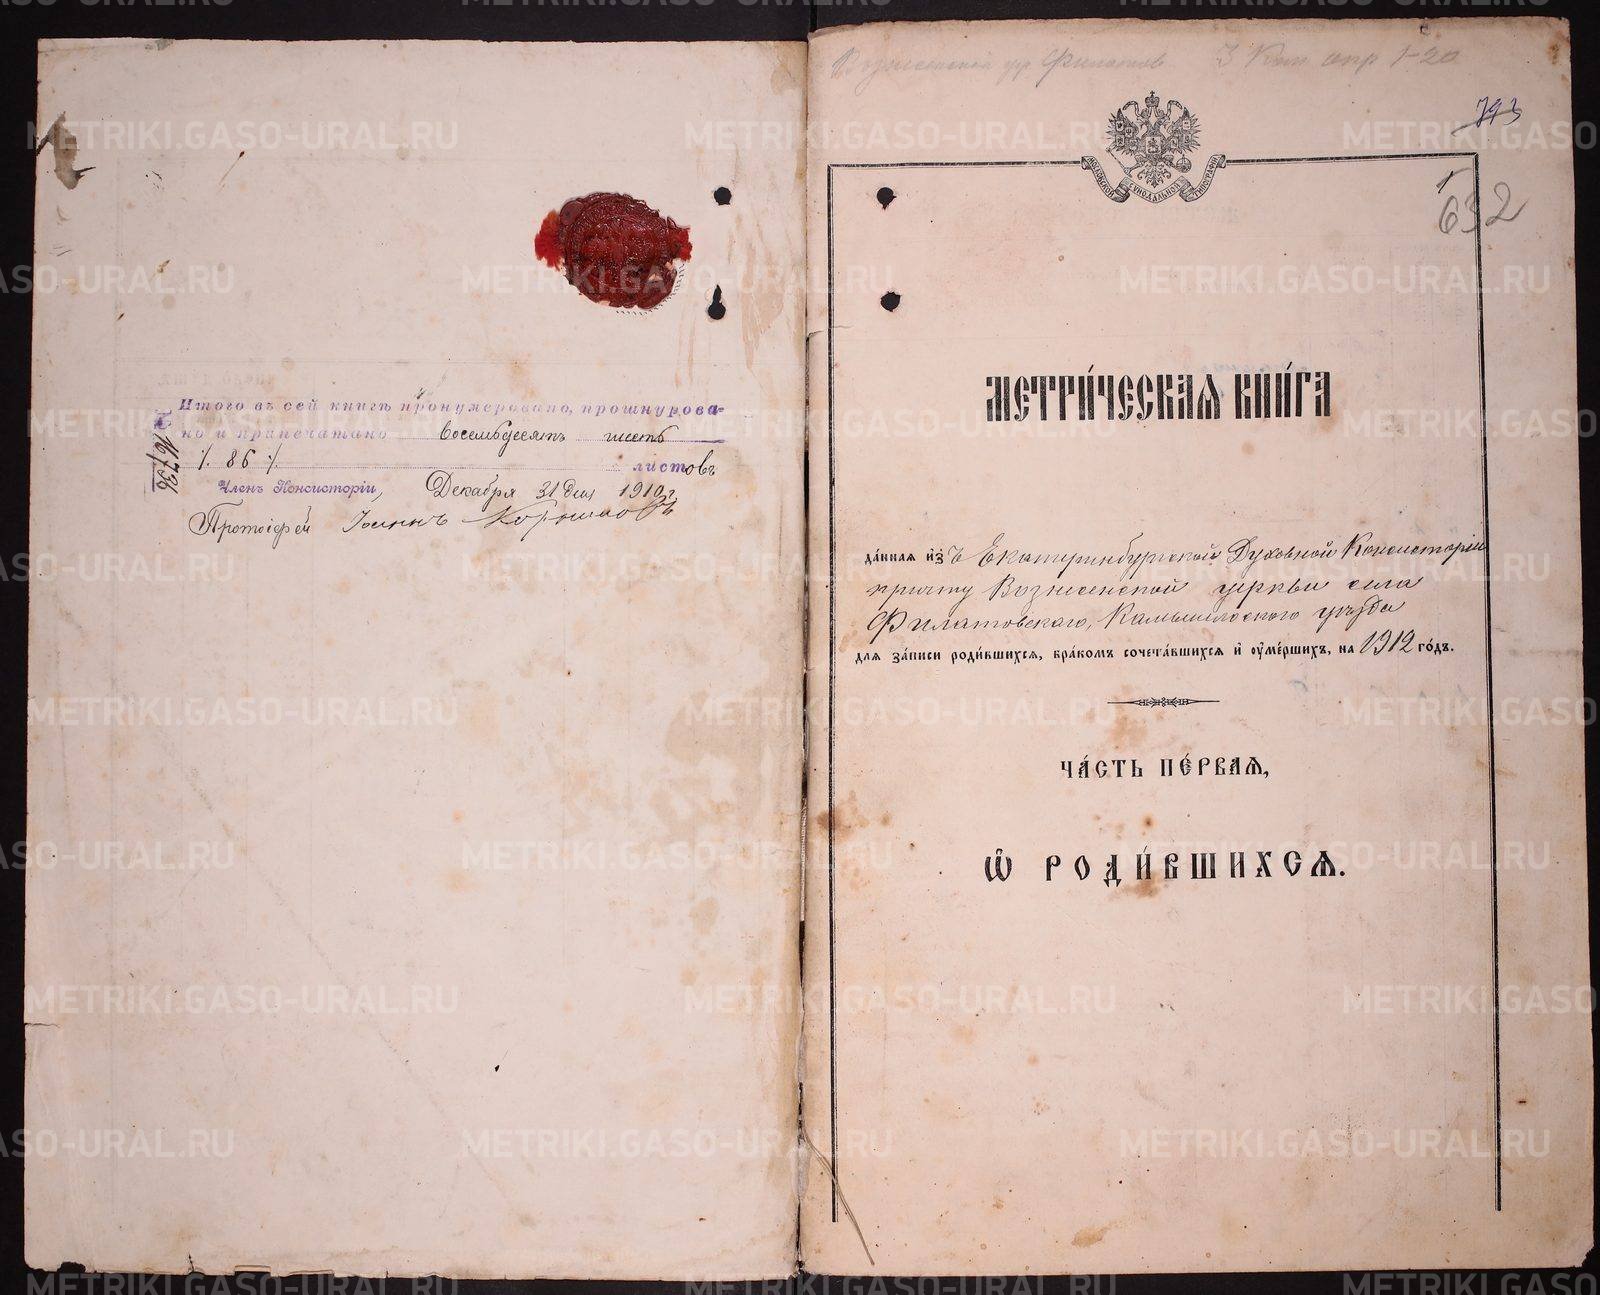 Итого въ сей книгѣ пронумеровано, прошнурова-
но и припечатано восемьдесятъ шесть
/. 86 ./. листовъ
Членъ Консисторіи, Декабря 31 дня 1910 г.
Протоіерей Іоаннъ
№ 16736
Вознесенской цр Филатов 3 Кам окр 1-20
793
1
632
МОСКОВСКОЙ СѴНОДАЛЬНОЙ ТИПОГРАФІИ
МЕТРИ́ЧЕСКАѦ КНИ́ГА
да́нная и҆зъ Екатеринбургской Духовной Консисторіи
причту Вознесенской церкви села
Филатовскаго, Камышловскаго уѣзда
для за́писи роди́вшихсѧ, бра́комъ сочета́вшихсѧ и҆ ѹ҆ме́ршихъ, на 1912 го́дъ.
ЧА́СТЬ ПЕ́РВАѦ,
Ѽ РОДИ́ВШИХСѦ.
METRIKI.GASO-URAL.RU